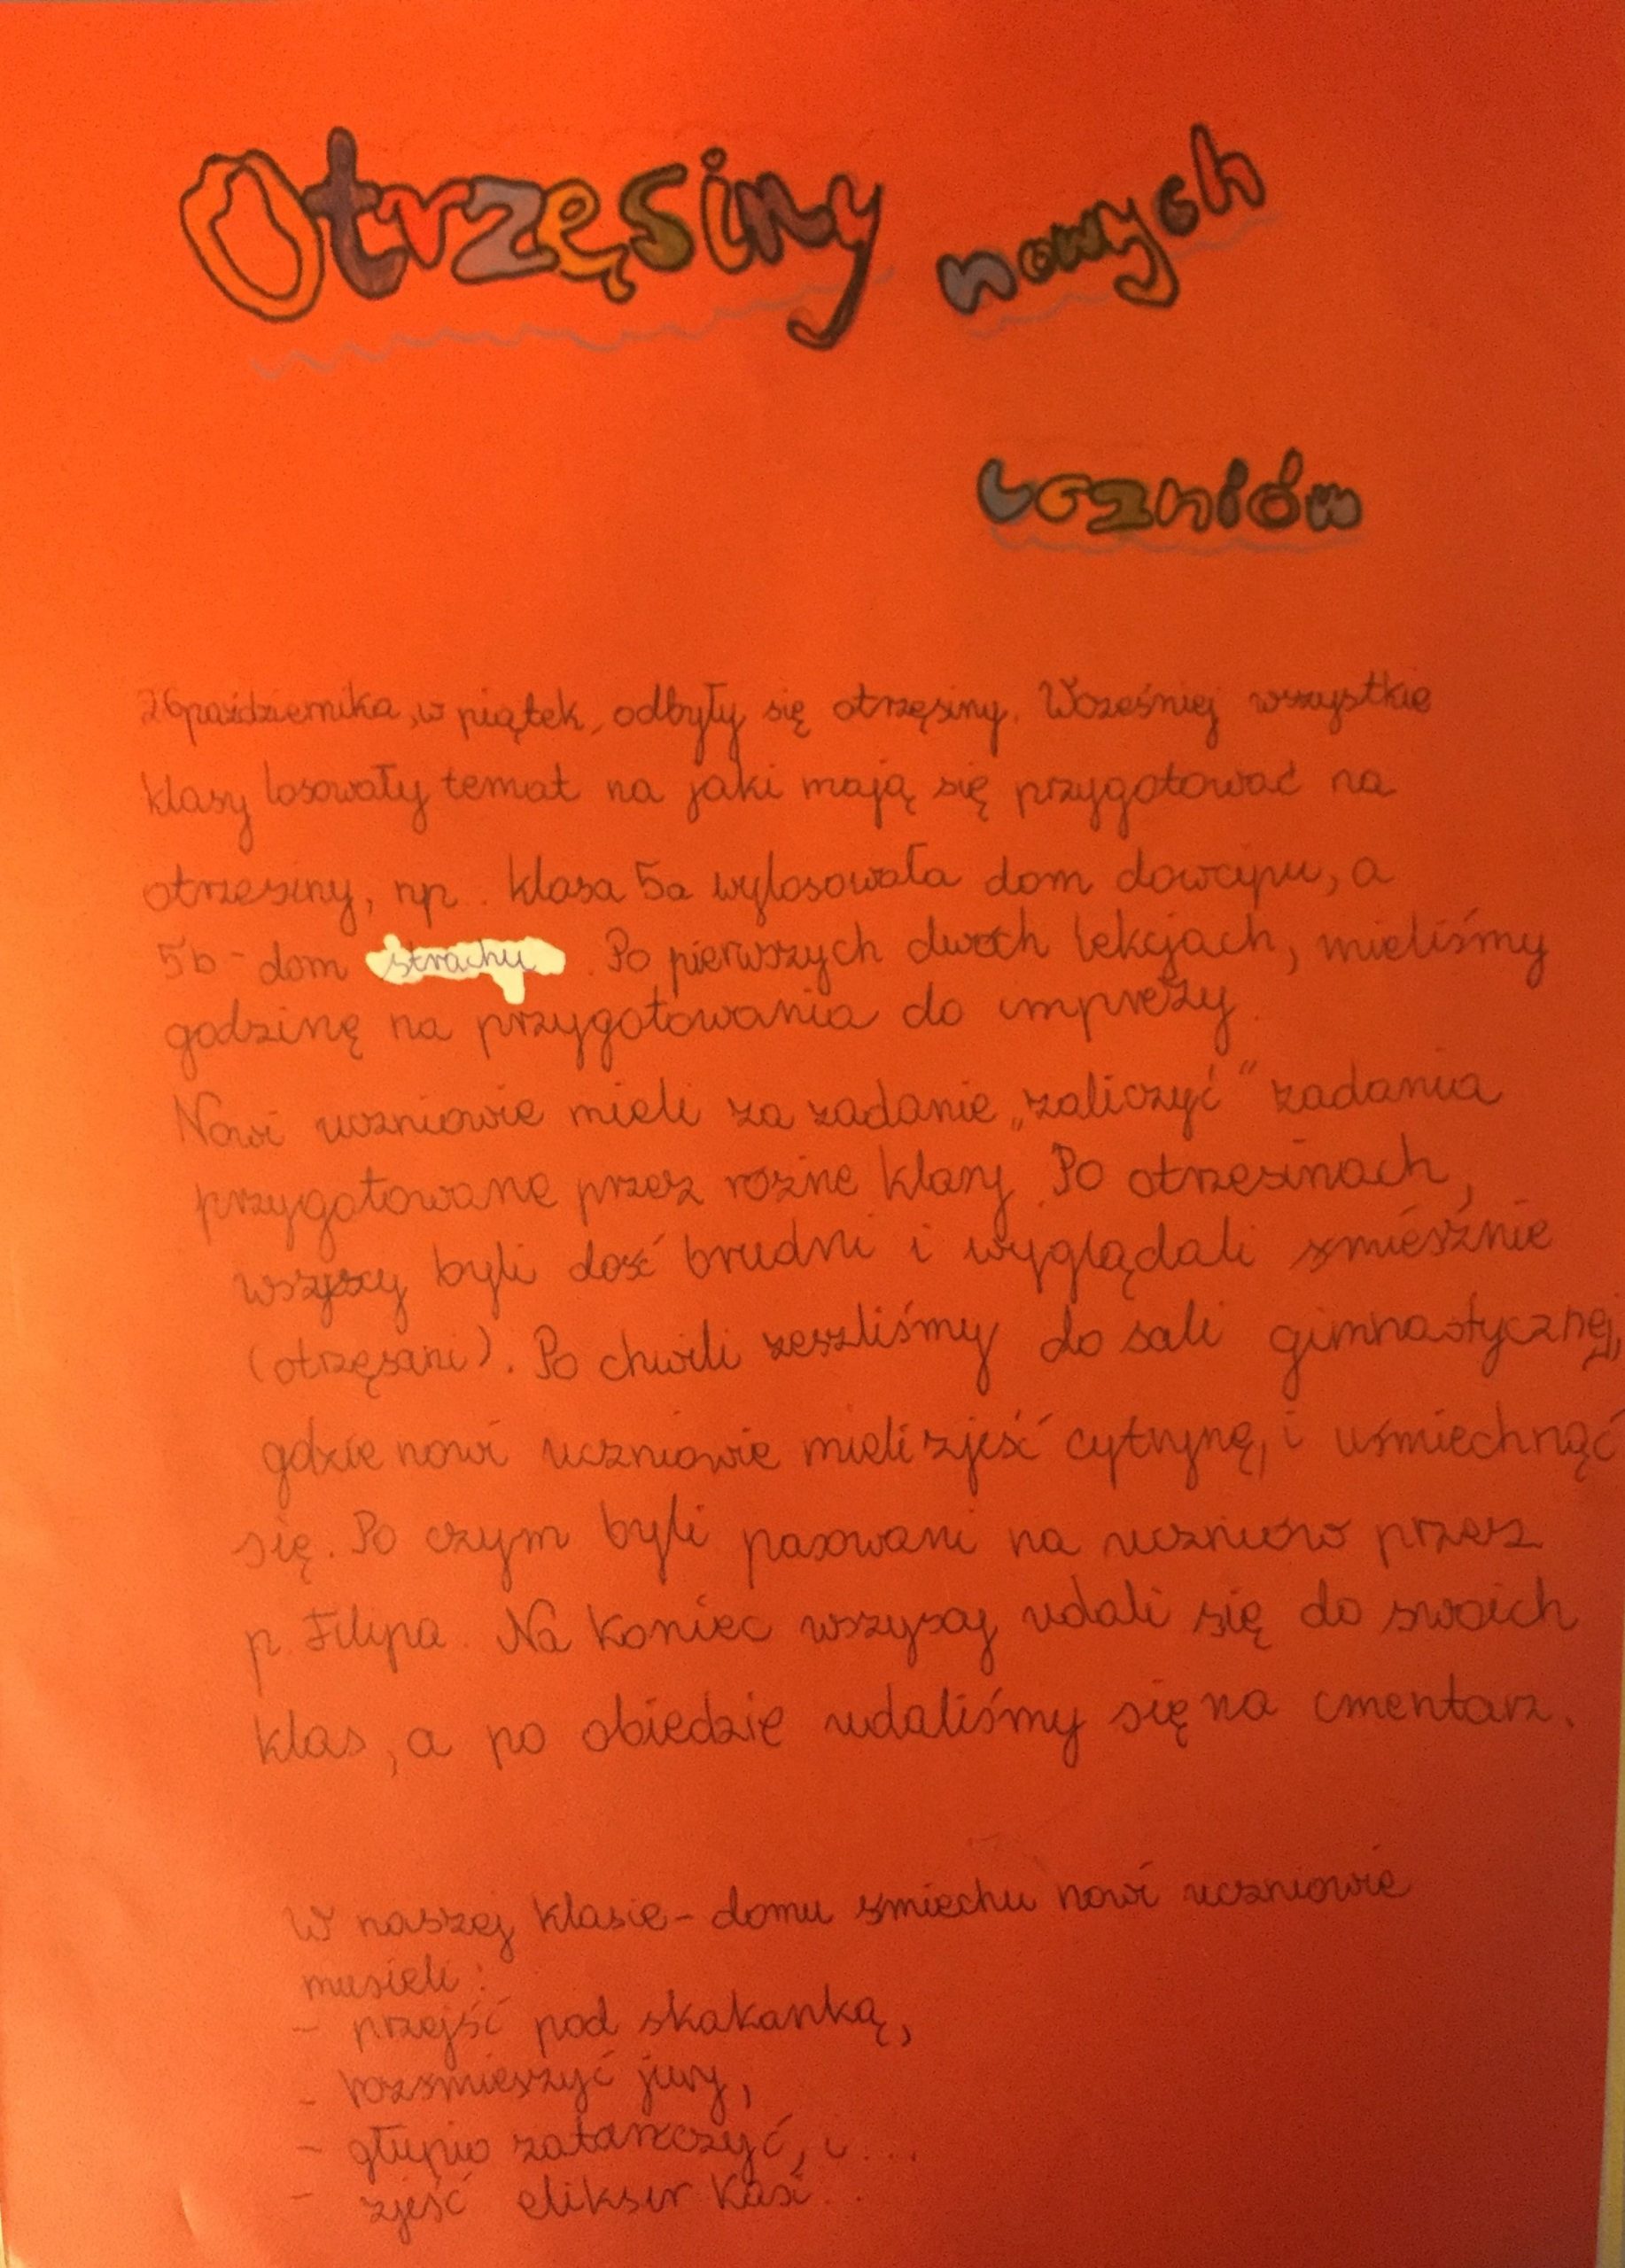 Otrzęsiny nowych
uczniów
26 października, w piątek, odbyły się otrzęsiny. Wcześniej wszystkie
klasy losowały temat na jaki mają się przygotować na
otrzesiny, np. klasa 5a wylosowała dom dowcipu, a
5b - dom strachu. Po pierwszych dwóch lekcjach, mieliśmy
godzinę na przygotowania do imprezy.
Nowi uczniowie mieli za zadanie „zaliczyć" zadania
przygotowane przez rożne klasy. Po otrzesinach,
wszyscy byli dość brudni i wyglądali śmiésznie
(otrzęsani). Po chwili zeszliśmy do sali gimnastycznej,
gdzie nowi uczniowie mieli zjeść cytrynę, i uśmiechnąć
się. Po czym byli pasowani na uczniów przez
p. Filipa. Na koniec wszyscy udali się do swoich
klas, a po obiedzie udaliśmy się na cmentarz.
W naszej klasie - domu śmiechu nowi uczniowie
musieli:
- przejść pod skakanką,
- rozśmieszyć jury,
- głupio zatańczyć, i...
- zjeść eliksir Kasi...